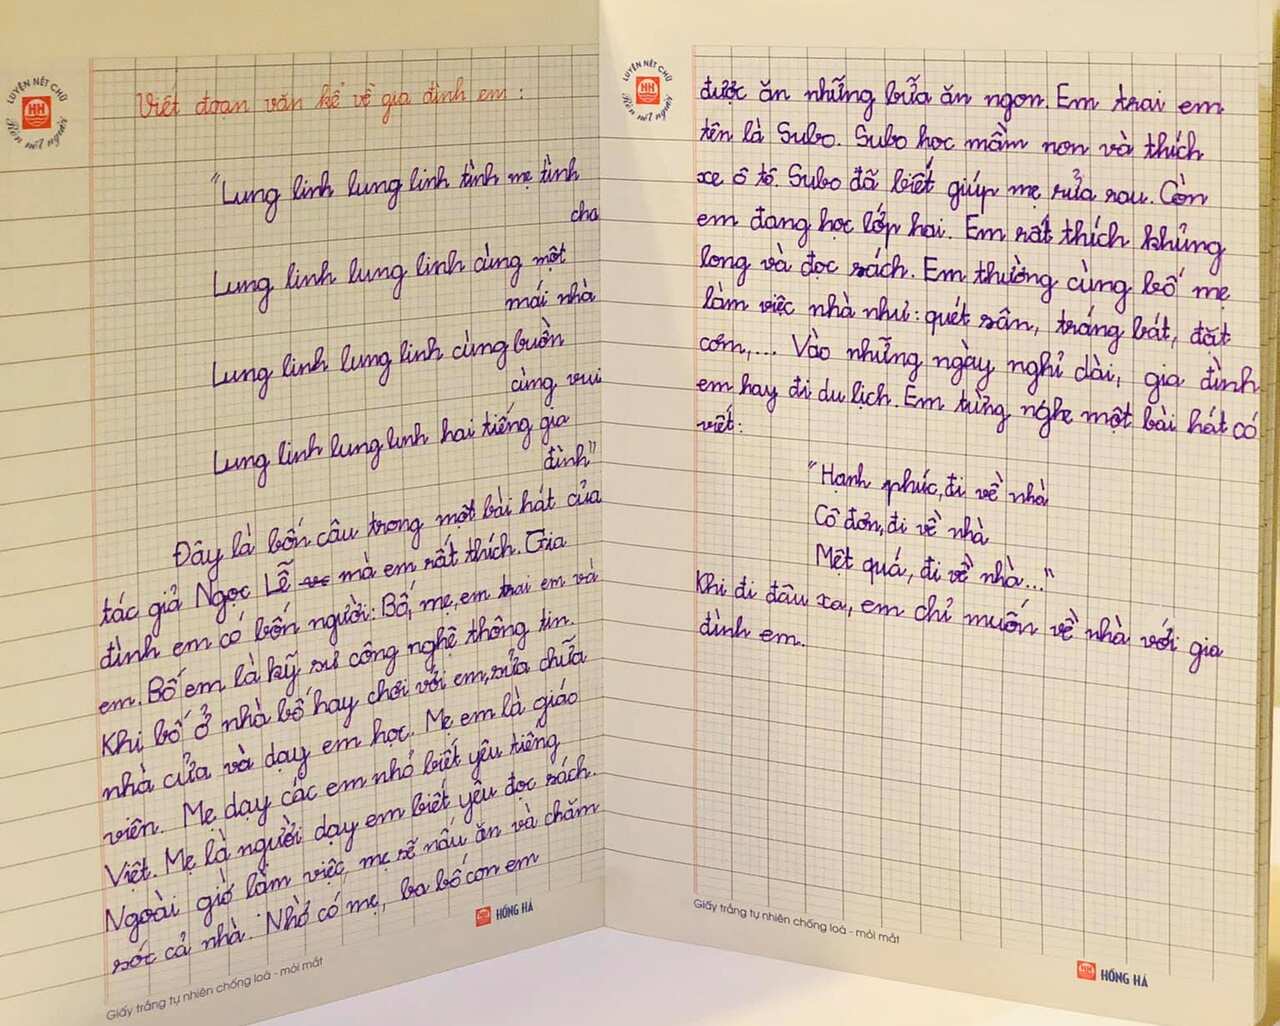 LUYỆN NÉT CHỮ
Rèn nết người
HH
Viết đoạn văn kể về gia đình em:
"Lung linh lung linh tình mẹ tình
cha
Lung linh lung linh cùng một
mái nhà
Lung linh lung linh cùng buồn
cùng vui
Lung linh lung linh hai tiếng gia
đình"
Đây là bốn câu trong một bài hát của
tác giả Ngọc Lễ mà em rất thích. Gia
đình em có bốn người: Bố, mẹ, em trai em và
em. Bố em là kỹ sư công nghệ thông tin.
Khi bố ở nhà bố hay chơi với em, sửa chữa
nhà cửa và dạy em học. Mẹ em là giáo
viên. Mẹ dạy các em nhỏ biết yêu tiếng
Việt. Mẹ là người dạy em biết yêu đọc sách.
Ngoài giờ làm việc, mẹ sẽ nấu ăn và chăm
sóc cả nhà. Nhờ có mẹ, ba bố con em
HH HỒNG HÀ
Giấy trắng tự nhiên chống loá - mỏi mắt
LUYỆN NÉT CHỮ
Rèn nết người
HH
được ăn những bữa ăn ngon. Em trai em
tên là Subo. Subo học mầm non và thích
xe ô tô. Subo đã biết giúp mẹ rửa rau. Còn
em đang học lớp hai. Em rất thích khủng
long và đọc sách. Em thường cùng bố mẹ
làm việc nhà như: quét sân, tráng bát, đặt
cơm,... Vào những ngày nghỉ dài, gia đình
em hay đi du lịch. Em từng nghe một bài hát có
viết:
"Hạnh phúc, đi về nhà
Cô đơn, đi về nhà
Mệt quá, đi về nhà..."
Khi đi đâu xa, em chỉ muốn về nhà với gia
đình em.
Giấy trắng tự nhiên chống loá - mỏi mắt
HH HỒNG HÀ